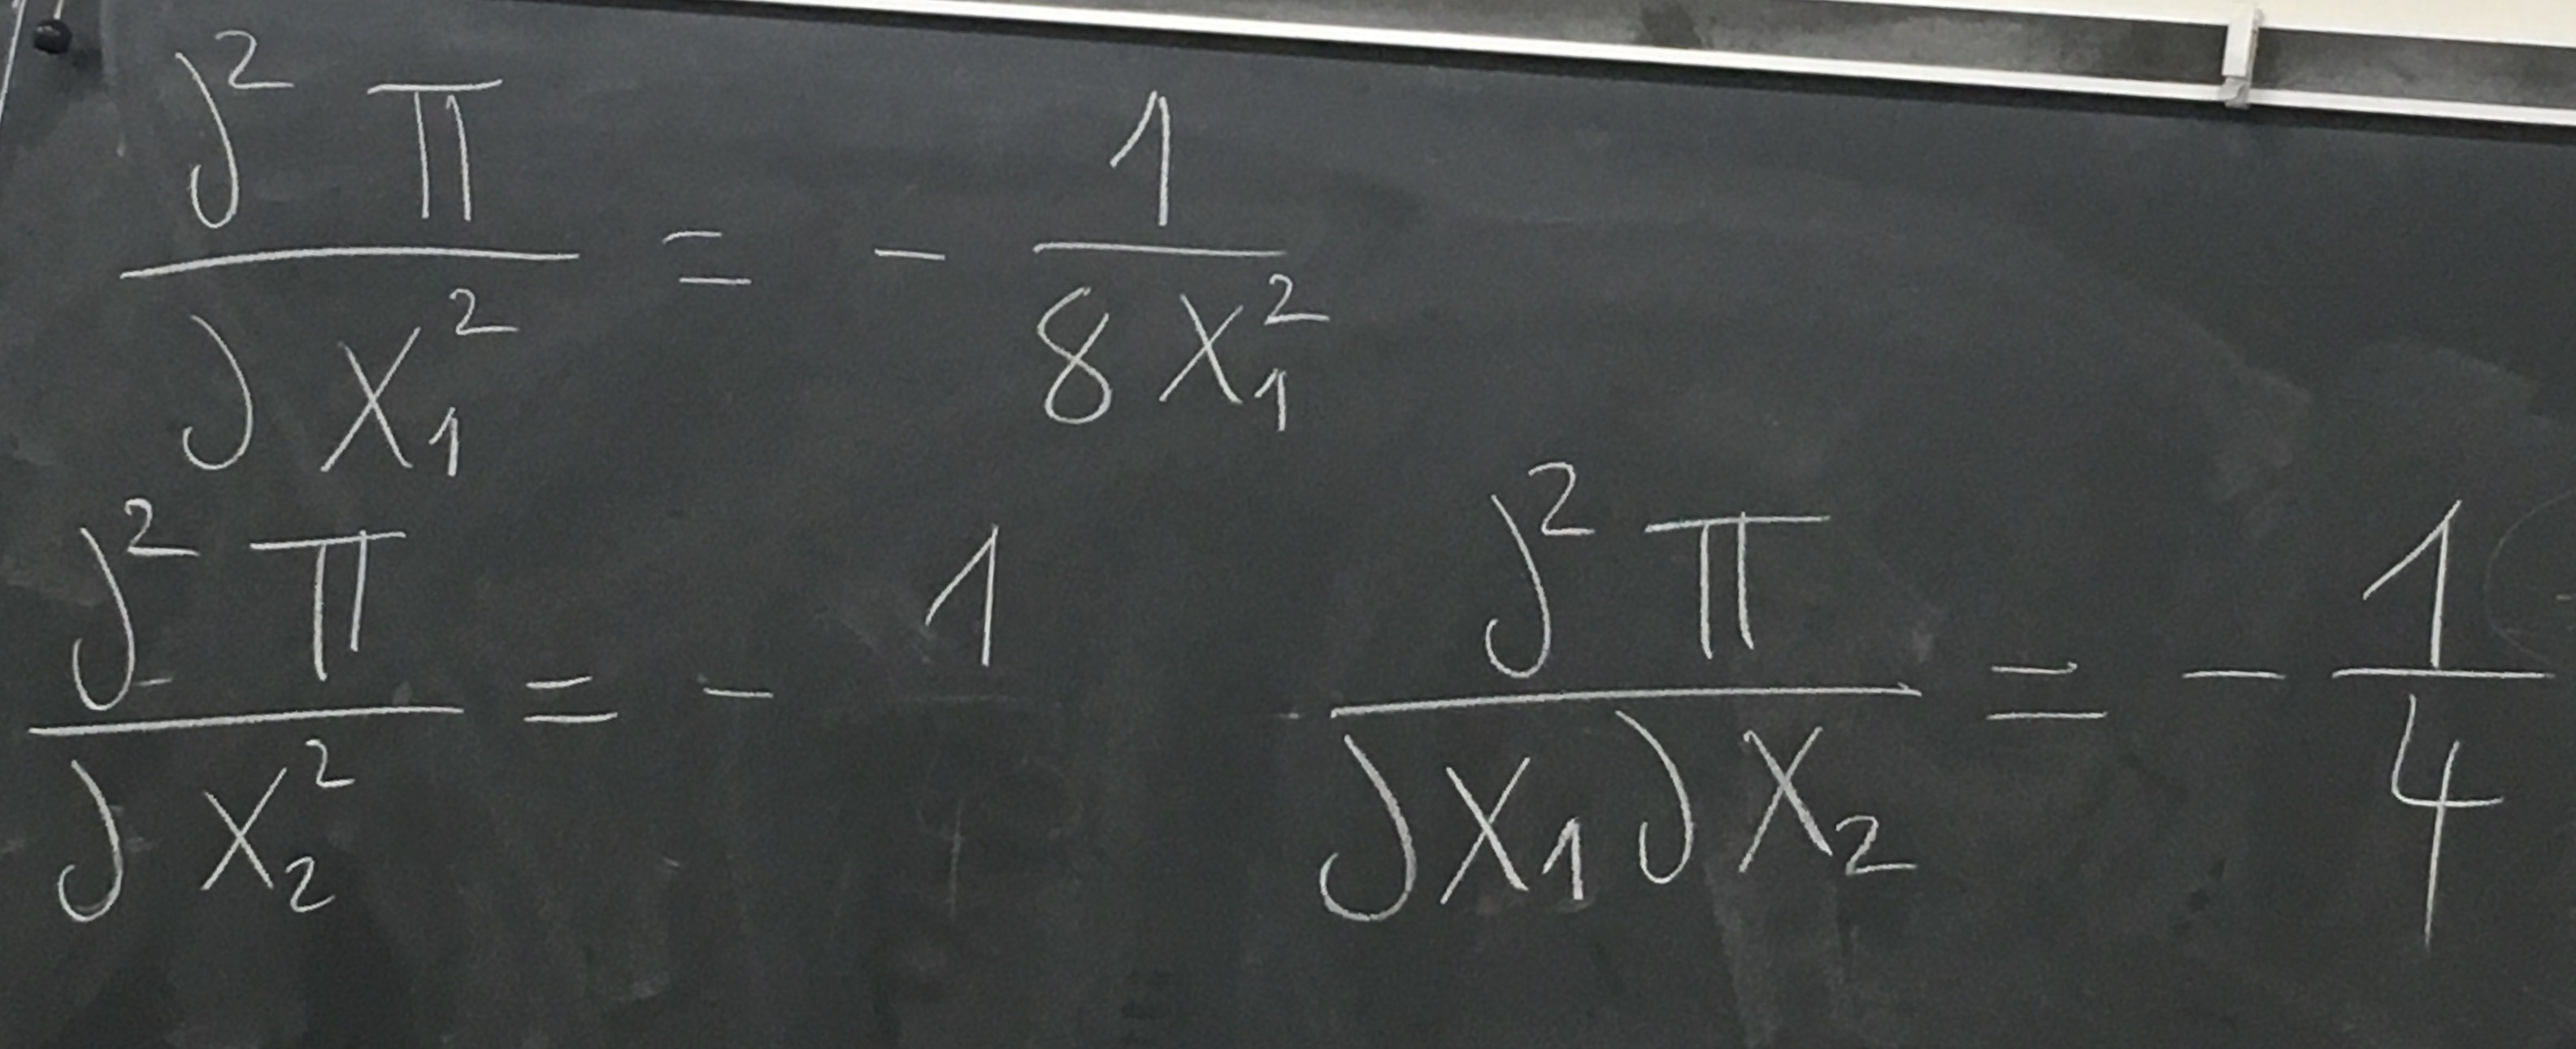 ∂² π / ∂ x₁² = - 1 / 8 x₁²
∂² π / ∂ x₂² = - 1
∂² π / ∂ x₁ ∂ x₂ = - 1 / 4